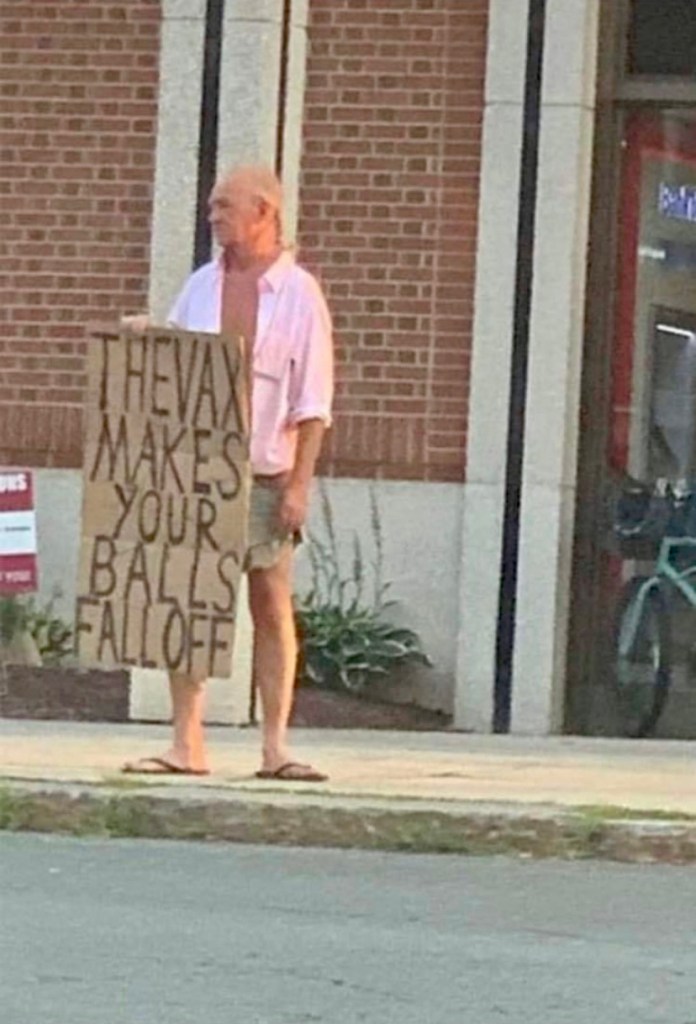 THE VAX
MAKES
YOUR
BALLS
FALL OFF